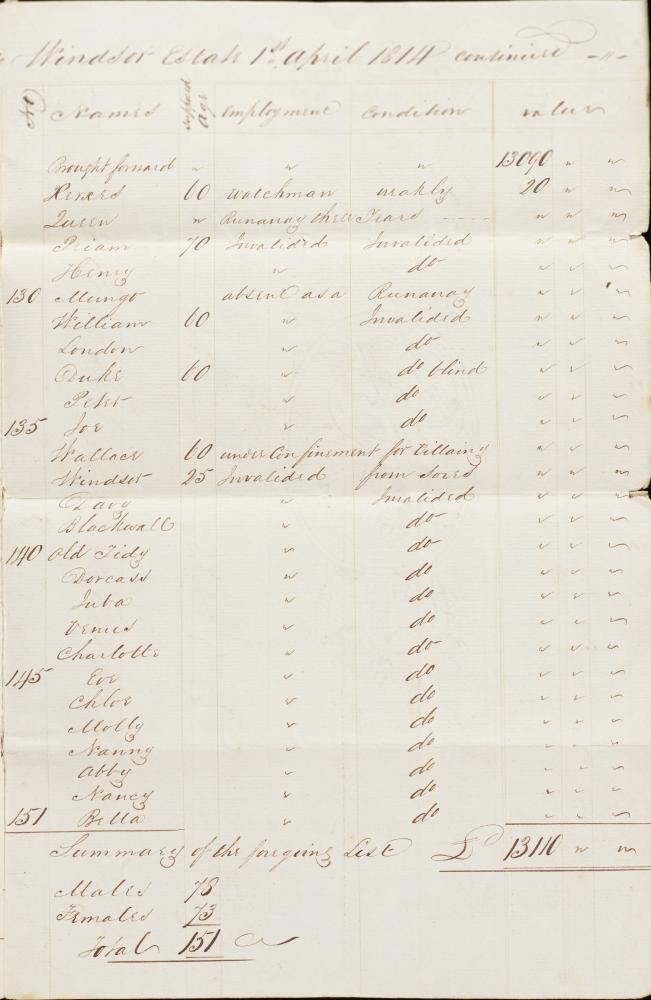 Windsor Estate 1st April 1814 continued
No Names Supposed Age Employment Condition value
Brought forward " " " 13090 " "
60 watchman weakly 20 " "
Queen " Runaway three Years ---- " " "
Priam 70 Invalided Invalided " " "
Henry " do " " "
130 Mungo absent as a Runaway " " "
William 60 " Invalided " " "
London " do " " "
Duke 60 " do blind " " "
Peter " do " " "
135 Joe " do " " "
Wallace 60 under Confinement for Villainy " " "
Windsor 25 Invalided from Sores " " "
Davy " Invalided " " "
Blackwall " do " " "
140 Old Tidy " do " " "
Dorcass " do " " "
Juba " do " " "
Venus " do " " "
Charlotte " do " " "
145 Eve " do " " "
Chloe " do " " "
Molly " do " " "
Nanny " do " " "
Abby " do " " "
Nancy " do " " "
151 Bella " do " " "
Summary of the foregoing List £ 13110 " "
Males 78
Females 73
Total 151